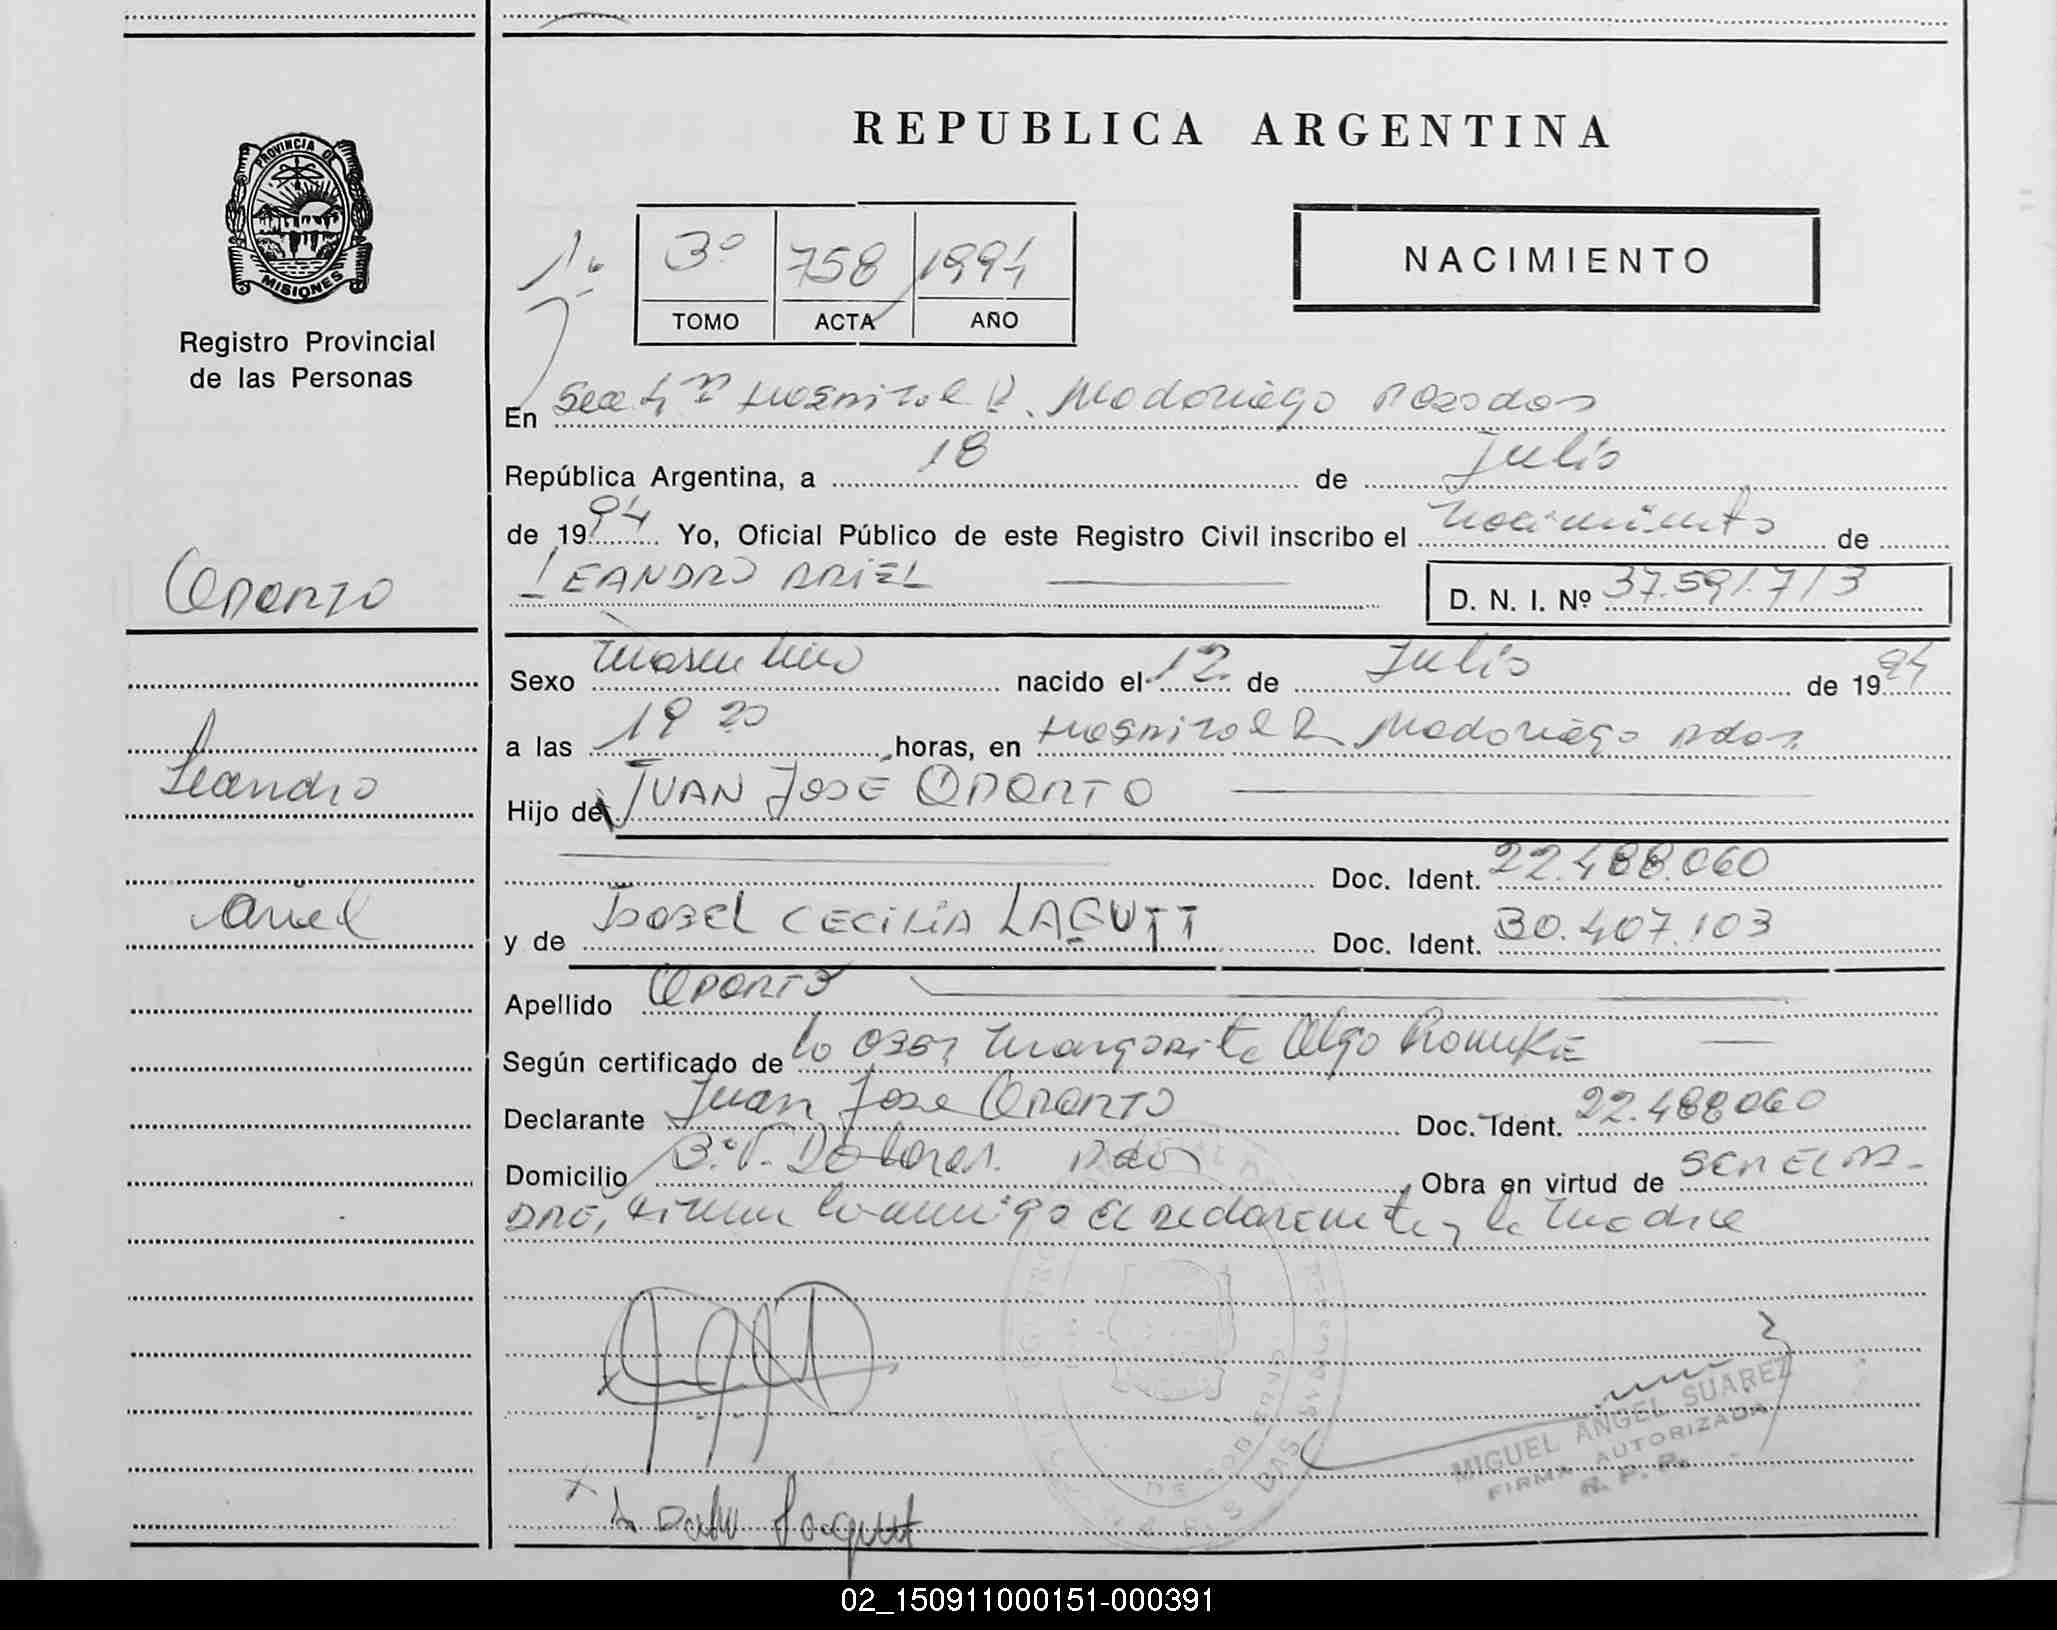 REPUBLICA ARGENTINA
PROVINCIA DE
MISIONES
Registro Provincial
de las Personas
3º 758 1994
TOMO ACTA AÑO
NACIMIENTO
En Hospital R. Madariaga Posadas
República Argentina, a 18 de Julio
de 1994 Yo, Oficial Público de este Registro Civil inscribo el nacimiento de
LEANDRO ARIEL D. N. I. Nº 37.591.713
OPORTO
Sexo masculino nacido el 12 de Julio de 1994
Leandro
a las 19 20 horas, en Hospital R Madariaga Pdas.
Hijo de JUAN JOSÉ OPORTO
Doc. Ident. 22.488.060
Ariel
y de ISABEL CECILIA Doc. Ident. 30.407.103
Apellido OPORTO
Según certificado de la Margarita Olga
Declarante Juan Jose OPORTO Doc. Ident. 22.488060
Domicilio Bº V. Dolores. Pdas Obra en virtud de SER EL PA-
DRE, firma conmigo el declarante y la madre
MIGUEL ANGEL SUAREZ
FIRMA AUTORIZADA
R. P. P.
02_150911000151-000391